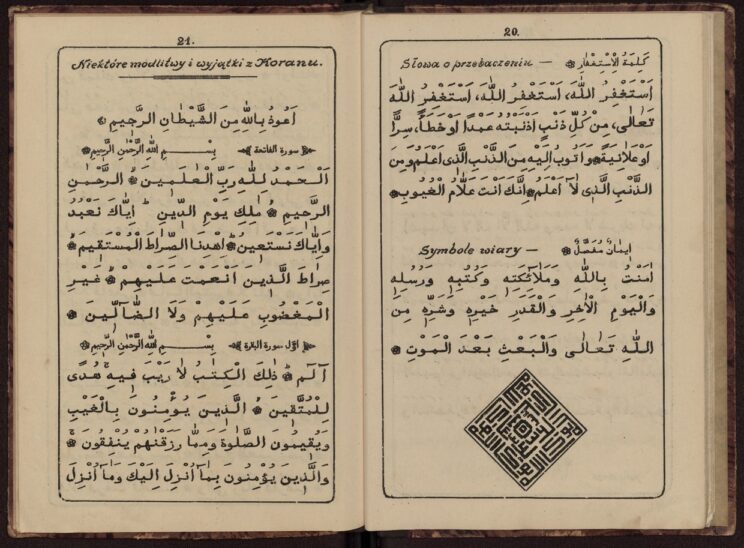 20.
Słowa o przebaczeniu — كَلِمَةُ الْاِسْتِغْفَارِ
اَسْتَغْفِرُ اللّٰهَ، اَسْتَغْفِرُ اللّٰهَ، اَسْتَغْفِرُ اللّٰهَ
تَعَالٰى، مِنْ كُلِّ ذَنْبٍ اَذْنَبْتُهُ عَمْدًا اَوْ خَطَأً، سِرًّا
اَوْ عَلَانِيَةً ۞ وَ اَتُوبُ اِلَيْهِ مِنَ الذَّنْبِ الَّذِى اَعْلَمُ وَمِنَ
الذَّنْبِ الَّذِى لَآ اَعْلَمُ ۞ اِنَّكَ اَنْتَ عَلَّامُ الْغُيُوبِ ۞
Symbole wiary — اِيمَانٌ مُفَصَّلٌ
اٰمَنْتُ بِاللّٰهِ وَمَلَآئِكَتِهِ وَكُتُبِهِ وَرُسُلِهِ
وَالْيَوْمِ الْاٰخِرِ وَالْقَدَرِ خَيْرِهِ وَشَرِّهِ مِنَ
اللّٰهِ تَعَالٰى وَالْبَعْثِ بَعْدَ الْمَوْتِ ۞
21.
Niektóre modlitwy i wyjątki z Koranu.
اَعُوذُ بِاللّٰهِ مِنَ الشَّيْطَانِ الرَّجِيمِ
سورة الفاتحة بِسْــــمِ اللّٰهِ الرَّحْمٰنِ الرَّحِيمِ
اَلْحَمْدُ لِلّٰهِ رَبِّ الْعٰلَمِينَ ۞ الرَّحْمٰنِ
الرَّحِيمِ ۞ مٰلِكِ يَوْمِ الدِّينِ ۞ اِيَّاكَ نَعْبُدُ
وَاِيَّاكَ نَسْتَعِينُ ۞ اِهْدِنَا الصِّرَاطَ الْمُسْتَقِيمَ ۞
صِرَاطَ الَّذِينَ اَنْعَمْتَ عَلَيْهِمْ ۞ غَيْرِ
الْمَغْضُوبِ عَلَيْهِمْ وَلَا الضَّآلِّينَ ۞
اوّل سورة البقرة بِسْــــمِ اللّٰهِ الرَّحْمٰنِ الرَّحِيمِ
الٓمٓ ۞ ذٰلِكَ الْكِتٰبُ لَا رَيْبَ فِيهِ ۞ هُدًى
لِلْمُتَّقِينَ ۞ الَّذِينَ يُؤْمِنُونَ بِالْغَيْبِ
وَيُقِيمُونَ الصَّلٰوةَ وَمِمَّا رَزَقْنٰهُمْ يُنْفِقُونَ ۞
وَالَّذِينَ يُؤْمِنُونَ بِمَآ اُنْزِلَ اِلَيْكَ وَمَآ اُنْزِلَ